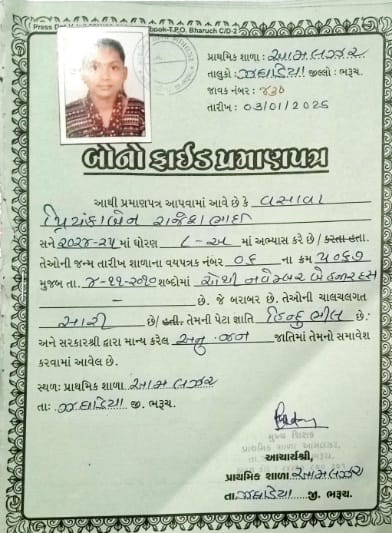 પ્રાથમિક શાળા : આમલઝર
તાલુકો : ઝઘડિયા જીલ્લો : ભરૂચ.
જાવક નંબર : ૪૩૦
તારીખ : 03/01/2025
બોનોફાઈડ પ્રમાણપત્ર
આથી પ્રમાણપત્ર આપવામાં આવે છે કે વસાવા
પ્રિયંકાબેન રાજેશભાઈ
સને ૨૦૨૪-૨૫ માં ધોરણ ૮-અ માં અભ્યાસ કરે છે / કરતા હતા.
તેઓની જન્મ તારીખ શાળાના વયપત્રક નંબર ૦૬ ના ક્રમ
મુજબ તા. ૪-૧૧-૨૦૧૦ શબ્દોમાં ચોથી નવેમ્બર બે હજાર દસ
છે. જે બરાબર છે. તેઓની ચાલચલગત
સારી છે/ હતી. તેમની પેટા જ્ઞાતિ હિન્દુ ભીલ છે.
અને સરકારશ્રી દ્વારા માન્ય કરેલ અનુ.જન જાતિમાં તેમનો સમાવેશ
કરવામાં આવેલ છે.
સ્થળ: પ્રાથમિક શાળા આમલઝર
તા: ઝઘડિયા જી. ભરૂચ.
મુખ્ય શિક્ષક
પ્રાથમિક શાળા આમલઝર
આચાર્યશ્રી,
પ્રાથમિક શાળા આમલઝર
તા. ઝઘડિયા જી. ભરૂચ.